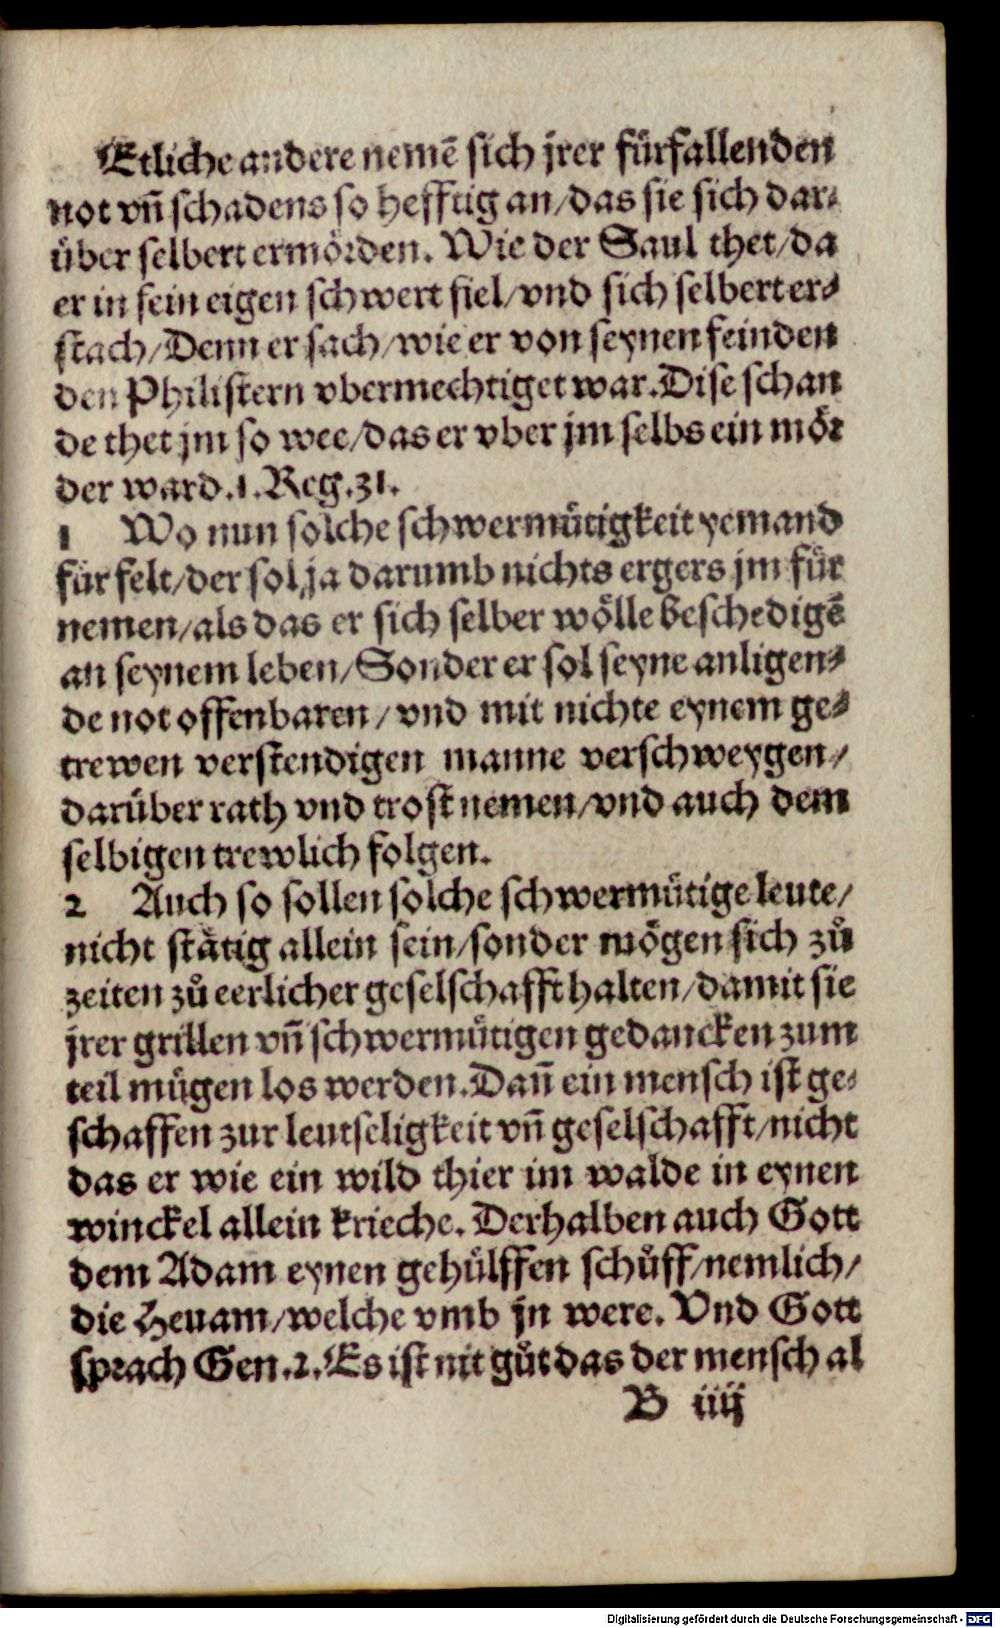 Etliche andere nemē sich jrer fürfallenden
not vn̄ schadens so hefftig an/das sie sich dar⸗
über selbert ermörden. Wie der Saul thet/da
er in sein eigen schwert fiel/vnd sich selbert er⸗
stach/Denn er sach/wie er von seynen feinden
den Philistern vbermechtiget war.Dise schan
de thet jm so wee/das er vber jm selbs ein mör
der ward.1.Reg.31.
1 Wo nun solche schwermütigkeit yemand
für felt/der sol ja darumb nichts ergers jm für
nemen/als das er sich selber wölle beschedigē
an seynem leben/Sonder er sol seyne anligen⸗
de not offenbaren/vnd mit nichte eynem ge⸗
trewen verstendigen manne verschweygen/
darüber rath vnd trost nemen/vnd auch dem
selbigen trewlich folgen.
2 Auch so sollen solche schwermütige leute/
nicht stätig allein sein/sonder mögen sich zů
zeiten zů eerlicher geselschafft halten/damit sie
jrer grillen vn̄ schwermütigen gedancken zum
teil mügen los werden.Dan̄ ein mensch ist ge⸗
schaffen zur leutseligkeit vn̄ geselschafft/nicht
das er wie ein wild thier im walde in eynen
winckel allein krieche. Derhalben auch Gott
dem Adam eynen gehülffen schůff/nemlich/
die Heuam/welche vmb jn were. Vnd Gott
sprach Gen.2.Es ist nit gůt das der mensch al
B iiij
Digitalisierung gefördert durch die Deutsche Forschungsgemeinschaft - DFG